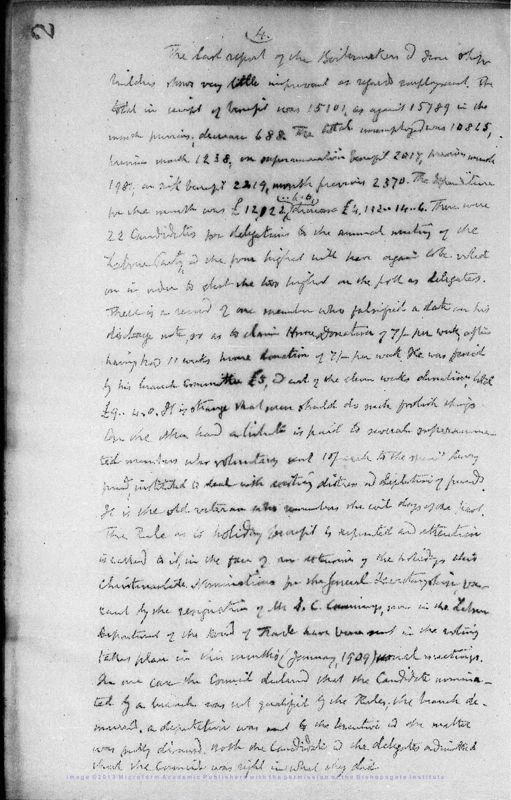 4.
The last report of the Boilermakers & Iron Ship
builders shows very little improvement as regards employment. The
total in receipt of benefit was 15101, as against 15789 in the
month previous, decrease 688. The total unemployed was 10865,
previous month 1238, on superannuation benefit 2017, previous month
198, on sick benefit 2219, month previous 2370. The expenditure
for the month was £12,022, decrease £4,112..14..6. There were
22 Candidates for delegation to the annual meeting of the
Labour Party, & the four highest will have again to be voted
on in order to elect the two highest on the poll as delegates.
There is a record of one member who falsified a date on his
discharge note, so as to claim Home Donation of 7/- per week, after
having had 11 weeks home donation of 7/- per week. He was fined
by his branch Committee £5, & cost of the eleven weeks donation total
£9.. 4..0. It is strange that men should do such foolish things.
On the other hand a tribute is paid to several superannua-
ted members who voluntary sent 10/- each to the special levy
fund, instituted to deal with existing distress and depletion of funds.
It is the old veteran who remembers the evil days of the past.
The Rule as to holiday benefit is reprinted and attention
is called to it, in the face of the holidays this
Christmastide. Nominations for the General Secretaryship, va-
cant by the resignation of Mr D. C. Cummings, now in the Labour
Department of the Board of Trade have been sent in the voting
takes place in this month's (January, 1909) usual meetings.
In one case the Council declared that the Candidate nomina-
ted by a branch was not qualified by the Rules, the branch de-
murred, a deputation was sent to the Executive & the matter
was fully discussed. Both the Candidate & the delegates admitted
that the Council was right in what they did.
Image ©2013 Microform Academic Publishers with the permission of the Bishopsgate Institute